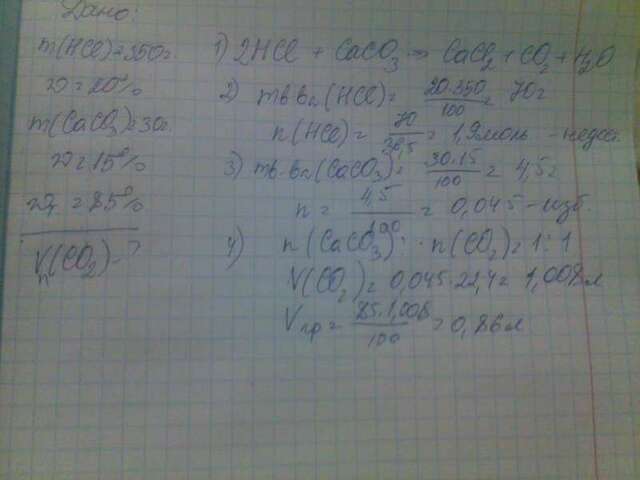 Дано:
m(HCl)=350г.
ω=20%
m(CaCO3)=30г.
ω=15%
ωr=85%
Vn(CO2)-?
1) 2HCl + CaCO3 → CaCl2 + CO2 + H2O
2) mв.ва(HCl)= 20·350/100 = 70г
n(HCl)= 70/36,5 = 1,9моль - недос.
3) mв-ва(CaCO3)= 30·15/100 = 4,5г
n = 4,5/100 = 0,045 - изб.
4) n(CaCO3) : n(CO2)=1:1
V(CO2)= 0,045·22,4= 1,008л
Vпр= 85·1,008/100 = 0,86л